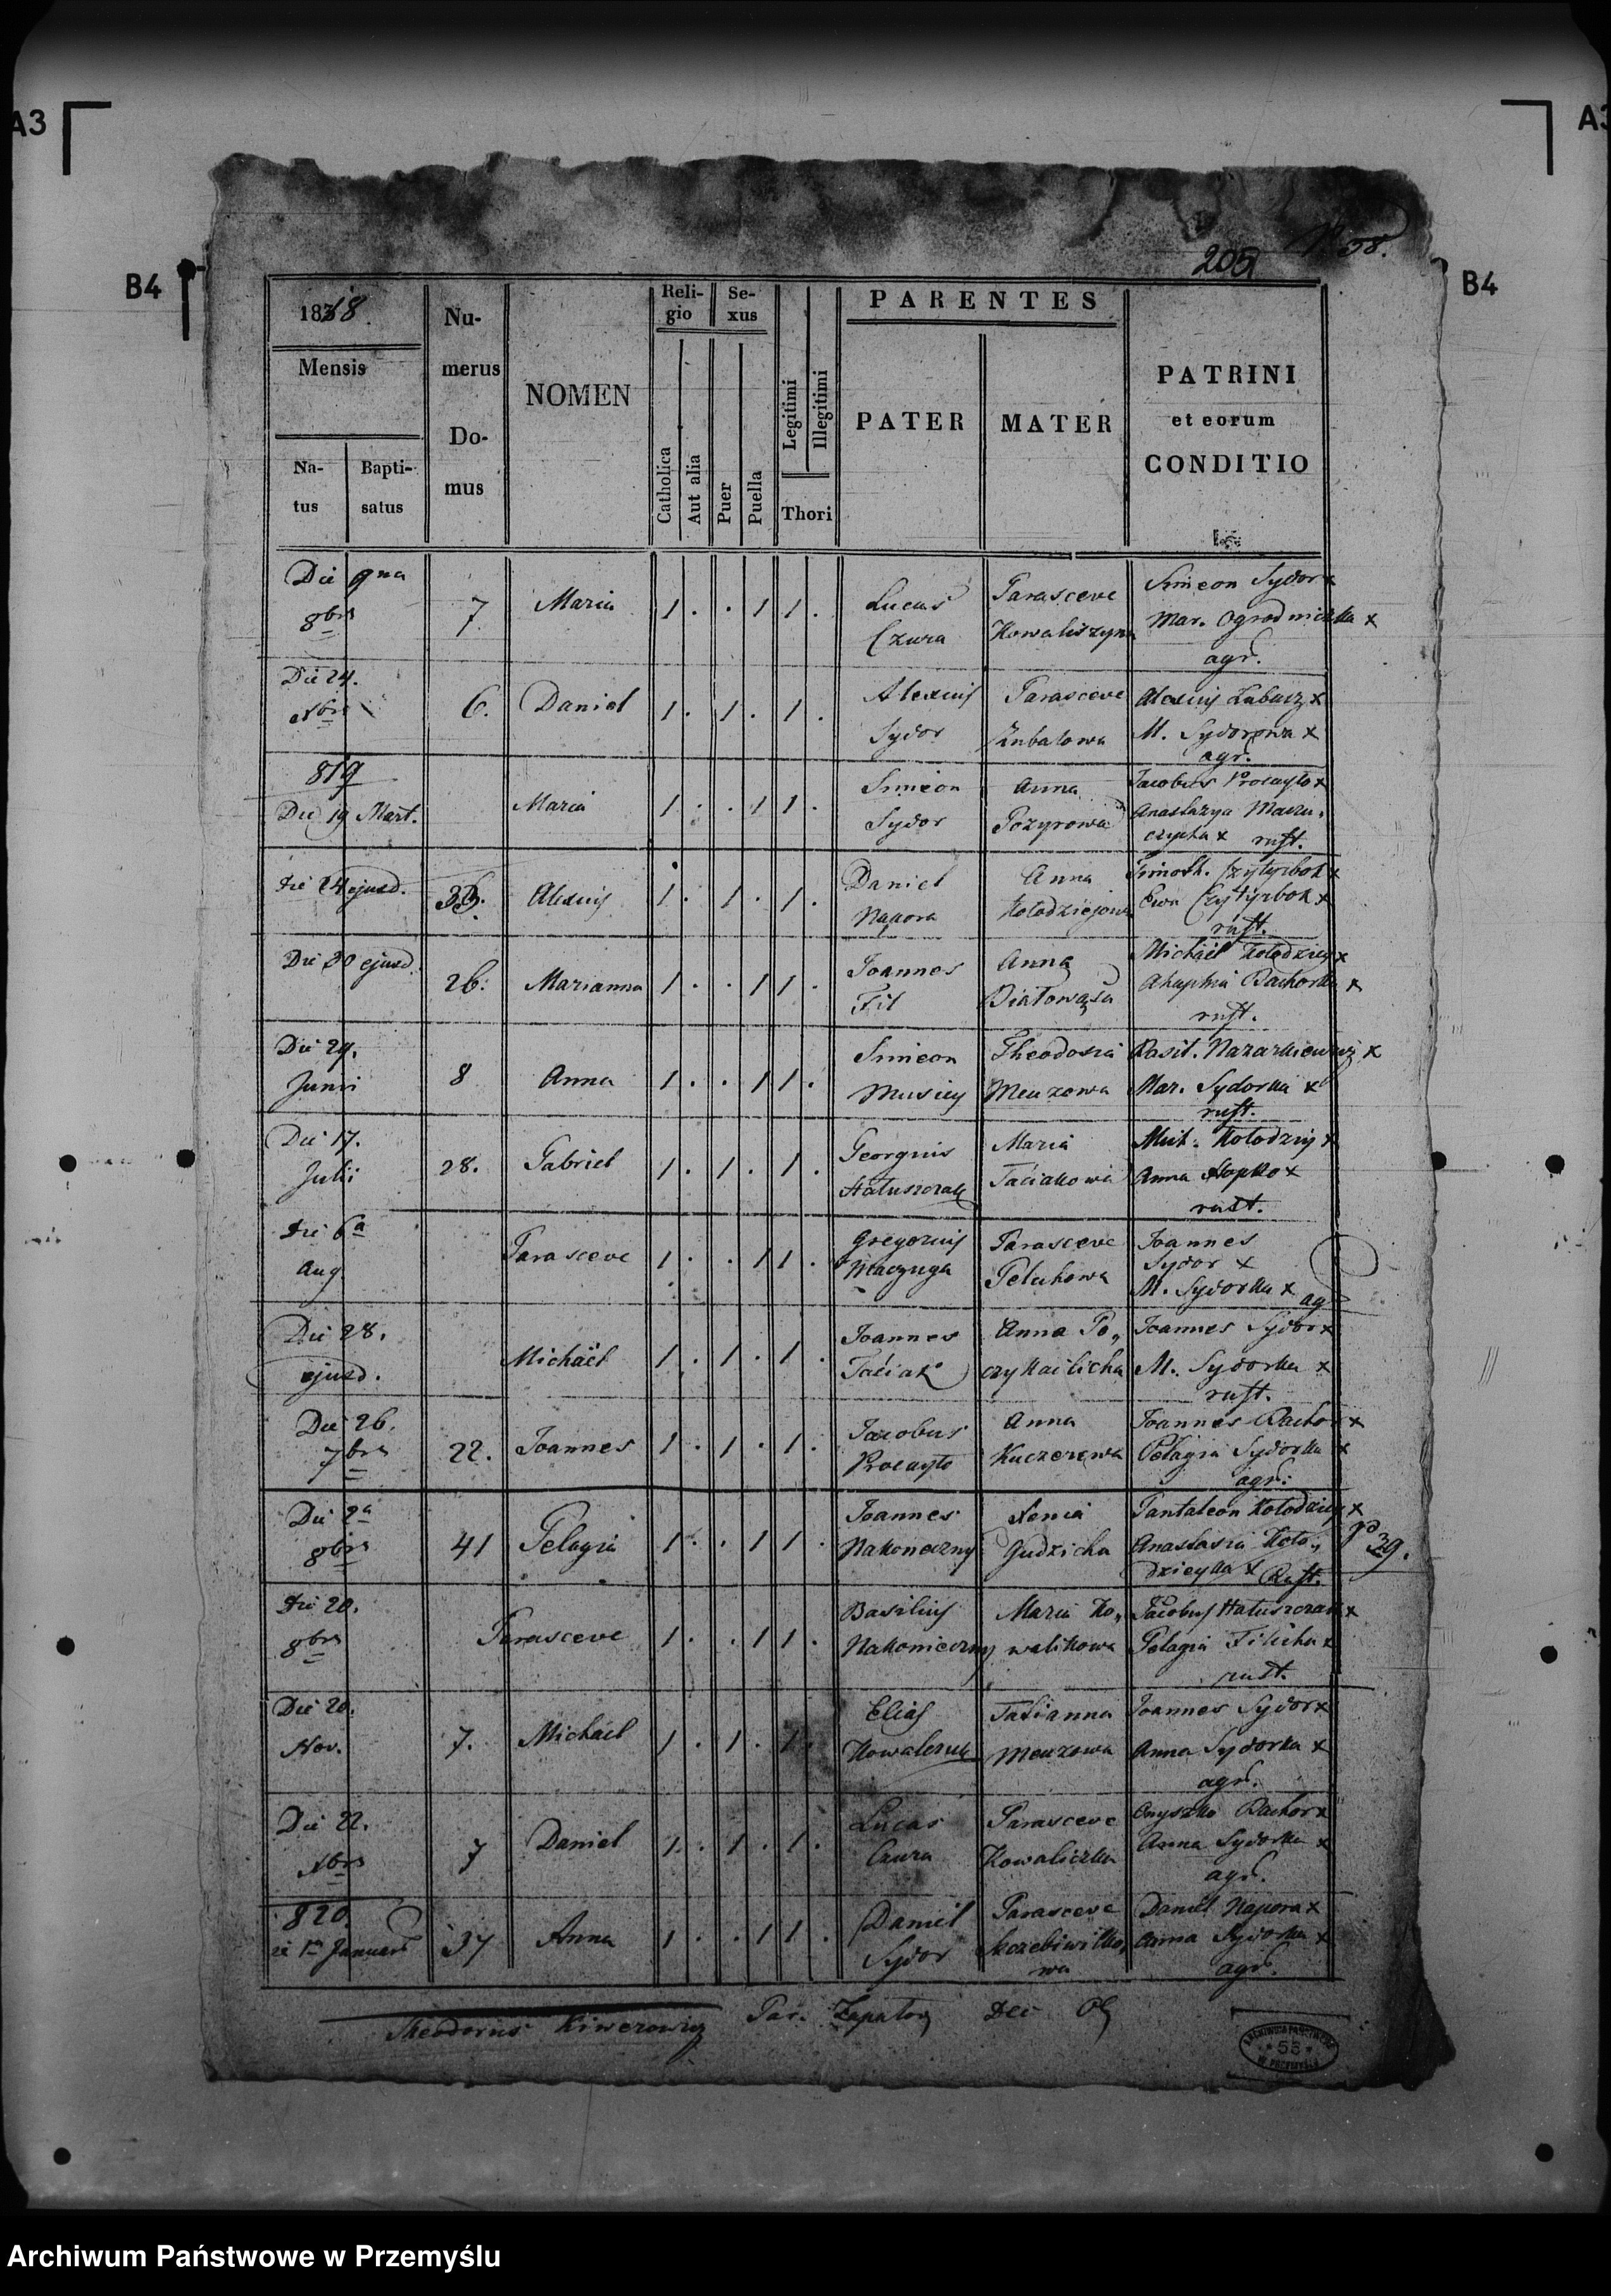 A3
A3
B4
B4
205
N. 58.
1818.
Mensis
Na-
tus
Bapti-
satus
Nu-
merus
Do-
mus
NOMEN
Reli-
gio
Catholica
Aut alia
Se-
xus
Puer
Puella
Legitimi
Illegitimi
Thori
PARENTES
PATER
MATER
PATRINI
et eorum
CONDITIO
Die 9na 8bris 7 Maria 1 . . 1 1 . Lucas Czura Parasceve Kowaliszyna Simeon Sydor x Mar. Ogrodniczka x agr.
Die 24. Xbris 6. Daniel 1 . 1 . 1 . Alexius Sydor Parasceve Zubalowa Alexius Labasz x M. Sydorowa x agr.
819
Die 19 Mart. Maria 1 . . 1 1 . Simeon Sydor Anna Pozyrowa Jacobus Procayło x Anastazya x rust.
Die 24 ejusd. Alexius 1 . 1 . 1 . Daniel Napora Anna Kołodziejowa Timoth. Czytyrbok x Ewa Czytyrbok x rust.
Die 30 ejusd. 26. Marianna 1 . . 1 1 . Joannes Fil Anna Michael Kołodziey x Bachorka x rust.
Die 29. Junii 8 Anna 1 . . 1 1 . Simeon Musiey Theodosia Meuzowa Basil. Nazarkiewicz x Mar. Sydorka x rust.
Die 17. Julii 28. Gabriel 1 . 1 . 1 . Georgius Hałuszczak Maria Taciakowa Mich. Kołodziy x Anna Hopko x rust.
Die 6a Aug Parasceve 1 . . 1 1 . Gregorius Maczuga Parasceve Pelichowa Joannes Sydor x M. Sydorka x ag
Die 28. ejusd. Michaël 1 . 1 . 1 . Joannes Taciak Anna Po„ Joannes Sydor x M. Sydorka x rust.
Die 26. 7bris 22. Joannes 1 . 1 . 1 . Jacobus Procayło Anna Kuczerowa Joannes Bachor x Pelagia Sydorka x agr:
Die 2a 8bris 41 Pelagia 1 . . 1 1 . Joannes Nakoneczny Xenia Gudzicha Pantaleon Kołodziey x Anastasia Koło„ dzieyka x Rust.
39.
Die 20. 8bris Parasceve 1 . . 1 1 . Basilius Nakonieczny Maria Ko„ walikowa Jacobus Hałuszczak x Pelagia Filicha x rust.
Die 20. Nov. 7. Michael 1 . 1 . 1 . Elias Kowalczuk Tatianna Meuzowa Joannes Sydor x Anna Sydorka x agr.
Die 22. Xbris 7 Daniel 1 . 1 . 1 . Lucas Czura Parasceve Kowaliczka Onyszko Bachor x Anna Sydorka x agr.
820.
1a Januari 37 Anna 1 . . 1 1 . Daniel Sydor Parasceve Daniel Napora x Anna Sydorka x agr.
Theodorius Kiwerowicz Par. Zapałow Dec Ol
ARCHIWUM PAŃSTWOWE
* 53 *
W PRZEMYŚLU
Archiwum Państwowe w Przemyślu